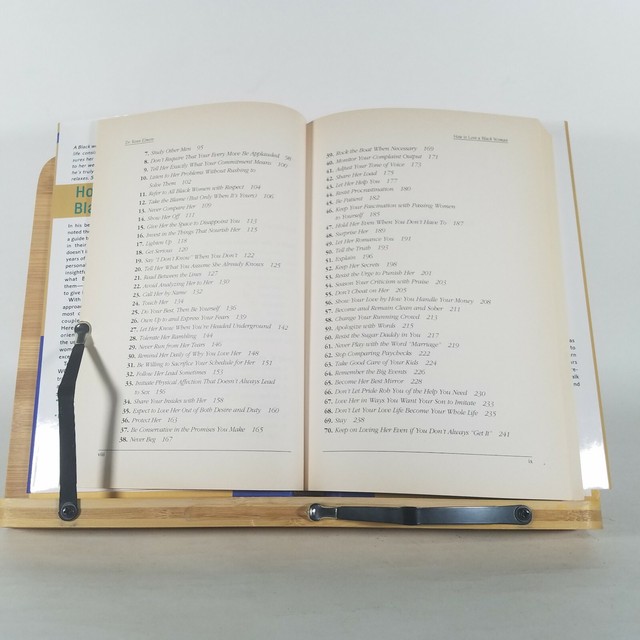 A Black w
life consis
sures her
to her w
he's truly
relaxes. S
Ho
Bla
In his be
noted th
a guide b
in their
doesn't
years of
persona
insightfu
what B
them—
to give
With
approac
most c
couple
Here
orien
the
wom
exc
Dr. Ronn Elmore
7. Study Other Men 95
8. Don't Require That Your Every Move Be Applauded 98
9. Tell Her Exactly What Your Commitment Means 100
10. Listen to Her Problems Without Rushing to
Solve Them 102
11. Refer to All Black Women with Respect 104
12. Take the Blame (But Only When It's Yours) 106
13. Never Compare Her 109
14. Show Her Off 111
15. Give Her the Space to Disappoint You 113
16. Invest in the Things That Nourish Her 115
17. Lighten Up 118
18. Get Serious 120
19. Say "I Don't Know" When You Don't 122
20. Tell Her What You Assume She Already Knows 125
21. Read Between the Lines 127
22. Avoid Analyzing Her to Her 130
23. Call Her by Name 132
24. Touch Her 134
25. Do Your Best, Then Be Yourself 136
26. Own Up to and Express Your Fears 139
27. Let Her Know When You're Headed Underground 142
28. Tolerate Her Rambling 144
29. Never Run from Her Tears 146
30. Remind Her Daily of Why You Love Her 148
31. Be Willing to Sacrifice Your Schedule for Her 151
32. Follow Her Lead Sometimes 153
33. Initiate Physical Affection That Doesn't Always Lead
to Sex 156
34. Share Your Foxes with Her 158
35. Expect to Love Her Out of Both Desire and Duty 160
36. Protect Her 163
37. Be Conservative in the Promises You Make 165
38. Never Beg 167
How to Love a Black Woman
39. Rock the Boat When Necessary 169
40. Monitor Your Complaint Output 171
41. Adjust Your Tone of Voice 173
42. Share Her Load 175
43. Let Her Help You 177
44. Resist Procrastination 180
45. Be Patient 182
46. Keep Your Fascination with Passing Women
to Yourself 185
47. Hold Her Even When You Don't Have To 187
48. Surprise Her 189
49. Let Her Romance You 191
50. Tell the Truth 193
51. Explain 196
52. Keep Her Secrets 198
53. Resist the Urge to Punish Her 201
54. Season Your Criticism with Praise 203
55. Don't Cheat on Her 205
56. Show Your Love by How You Handle Your Money 208
57. Become and Remain Clean and Sober 211
58. Change Your Running Crowd 213
59. Apologize with Words 215
60. Resist the Sugar Daddy in You 217
61. Never Play with the Word "Marriage" 219
62. Stop Comparing Paychecks 222
63. Take Good Care of Your Kids 224
64. Remember the Big Events 226
65. Become Her Best Mirror 228
66. Don't Let Pride Rob You of the Help You Need 230
67. Love Her in Ways You Want Your Son to Imitate 233
68. Don't Let Your Love Life Become Your Whole Life 235
69. Stay 238
70. Keep on Loving Her Even if You Don't Always "Get It" 241